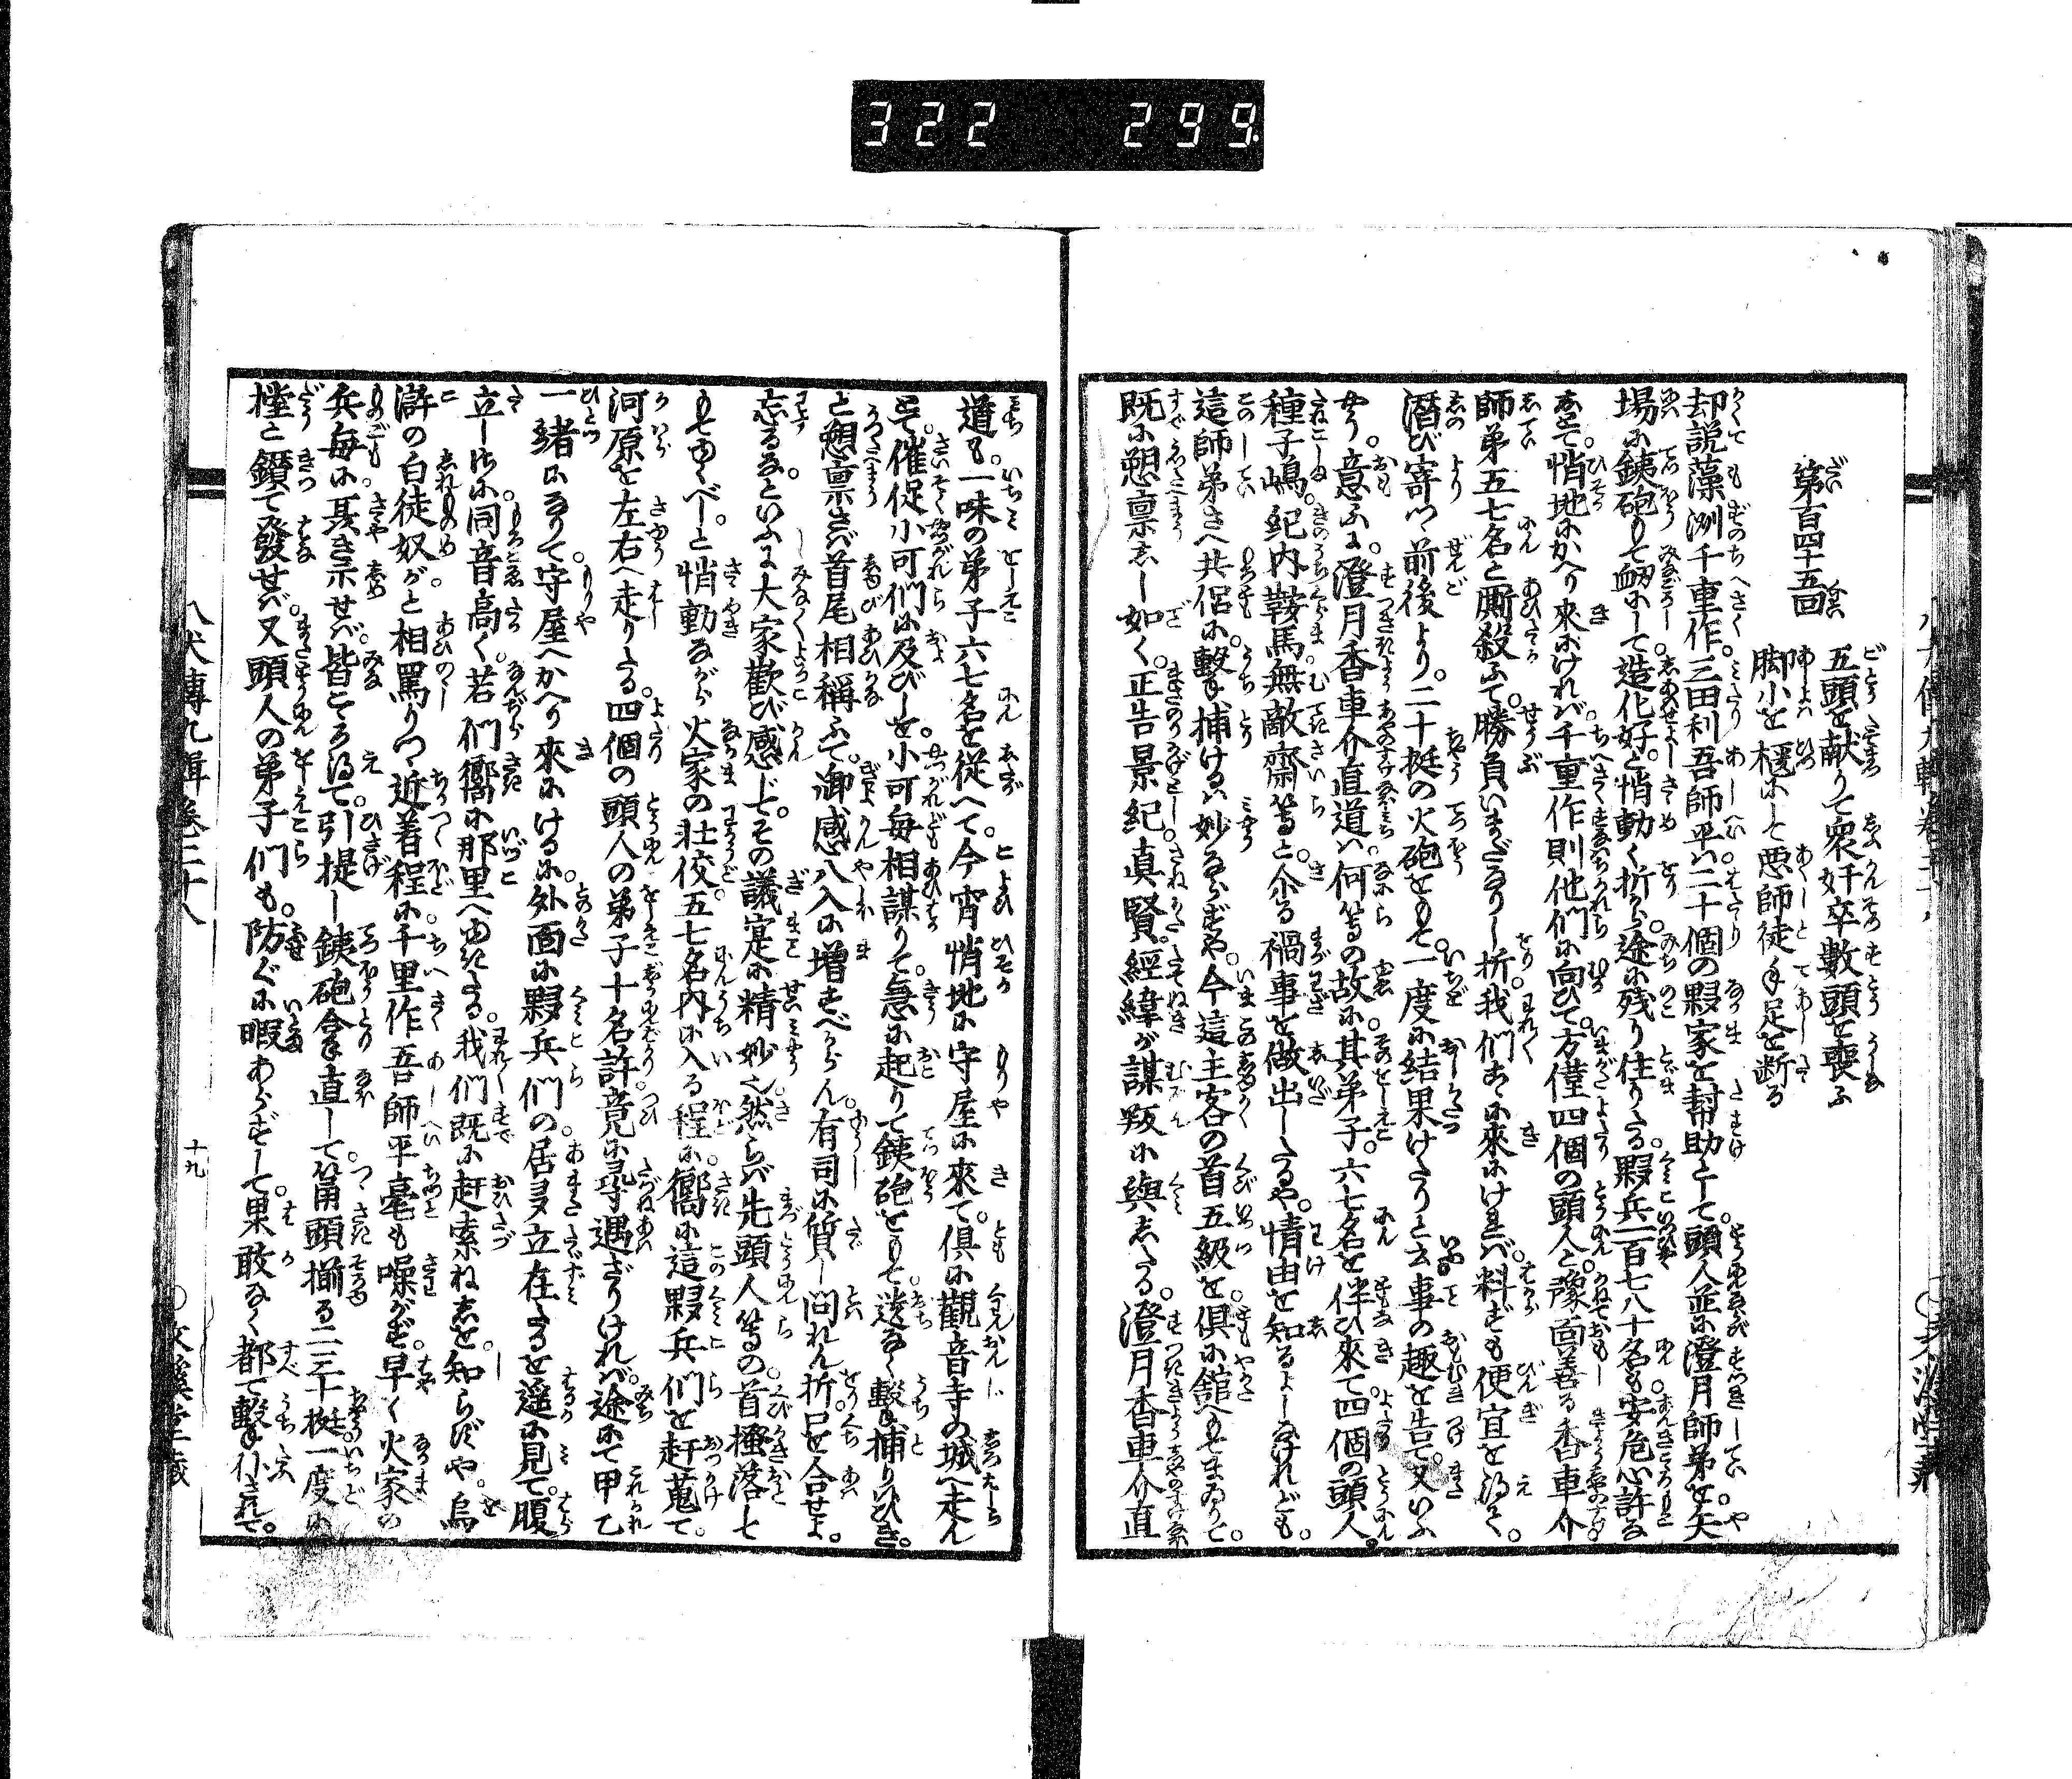 322 299
第百四十五回
五頭を献りて衆奸卒數頭を喪ふ
脚小を櫃にして悪師徒手足を断る
却説藻洌千重作三田利吾師平は二十個の夥家を幇助として頭人並に澄月師弟を矢
場に銕砲もて𪗱にして造化好と悄動く折から途に残り住りたる夥兵一百七八十名も安危心許な
しとて悄地にかへり來にければ千重作則他們に向ひて方僅四個の頭人と豫面善る香車介
師弟五七名と厮殺ふて勝負いまだなりし折我們こゝに來にければ料ずも便宜を得て
潜び寄つゝ前後より二十挺の火砲をもて一度に結果けたりと云事の趣を告て又いふ
やう意ふに澄月香車介直道は何等の故に其弟子六七名を伴ひ來て四個の頭人
種子嶋紀内鞍馬無敵齋等と尒る禍事を做出したるや情由を知るよしなけれども
這師弟さへ共侶に撃捕けるは妙ならずや今這主客の首五級を倶に館へもてまゐりて
既に愬稟しゝ如く正告景紀真賢經緯が謀叛に與したる澄月香車介直
道も一味の弟子六七名を從へて今宵悄地に守屋に來て倶に觀音寺の城へ走ん
とて催促小可們に及びしを小可毎相謀りて急に起りて銕砲をもて送なく撃捕りひき
と愬稟さば首尾相稱ふて御感八入に増すべからん有司に質し問れん折口を合せよ
忘るなといふに大家歡び感じてその議寔に精妙也然らば先頭人等の首搔落して
もてゆくべしと悄動ながら火家の壮佼五七名内に入る程に嚮に這夥兵們を赶蒐て
河原を左右へ走りたる四個の頭人の弟子十名許竟に尋遇ざりければ途にて甲乙
一緒になりて守屋へかへり來にけるに外面に夥兵們の居多立在たるを遥に見て腹
立しさに同音高く若們嚮に那里へゆきたる我們既に赶索ねしを知らずや烏
滸の白徒奴がと相罵りつゝ近着程に千里作吾師平毫も噪がず早く火家の
兵毎に聶き示せば皆こゝろ得て引提し銕砲拿直して筩頭揃る二三十挺一度に
摚と鑚て發せば又頭人の弟子們も防ぐに暇あらずして果敢なく都て撃仆されて
八犬傳九輯巻二十八
十九